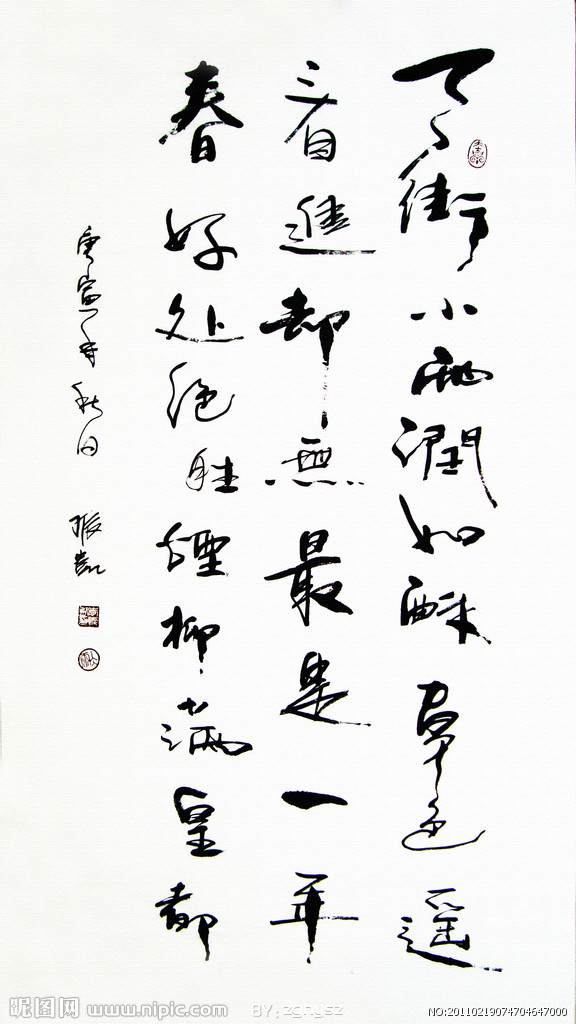 天街小雨潤如酥草色遥
看進却無最是一年
春好处絶胜煙柳满皇都
庚寅年秋日 振凯
昵图网 www.nipic.com BY:zghysz NO:20110219074704647000